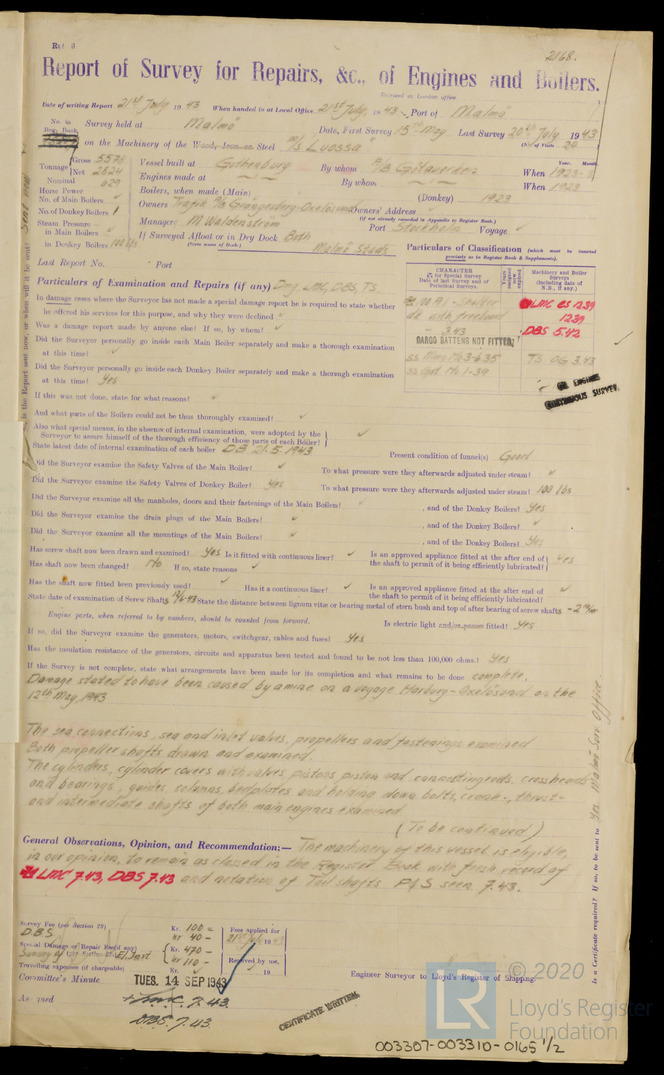 2168.
Report of Survey for Repairs, &c., of Engines and Boilers.
Received at London office
Date of writing Report 21st July 1943 When handed in at Local Office 21st July, 1943 Port of Malmö
No. in Reg. Book. Survey held at Malmö Date, First Survey 15th May Last Survey 20th July 1943
on the Machinery of the Wood, Iron or Steel M/S "Luossa" (No. of Visits 20)
Tonnage Gross 5576 Vessel built at Gothenburg By whom A/B Götaverken When 1923
Net 2824 Engines made at By whom When 1923
Nominal Horse Power 629 Boilers, when made (Main) (Donkey) 1923
No. of Main Boilers Owners Trafik A/B Grängesberg-Oxelösund Owners' Address
(if not already recorded in Appendix to Register Book.)
No. of Donkey Boilers 1 Managers M. Waldenström Port Stockholm Voyage
Steam Pressure in Main Boilers If Surveyed Afloat or in Dry Dock Both
in Donkey Boilers 100 lbs (State name of Dock.) Malmö Stads
Last Report No. Port
Particulars of Classification (which must be inserted precisely as in Register Book & Supplements).
CHARACTER Machinery and Boiler Surveys (including date of N.B., if any)
LMC CS 12.39
12.39
3.43 DBS 5.42
CARGO BATTENS NOT FITTED.
SS No 3-6.35 TS OG 3.43
SS No 1-39
OF ENGINE
CONTINUOUS SURVEY.
Particulars of Examination and Repairs (if any) Dmg, LMC, DBS, TS.
In damage cases where the Surveyor has not made a special damage report he is required to state whether
he offered his services for this purpose, and why they were declined
Was a damage report made by anyone else? If so, by whom?
Did the Surveyor personally go inside each Main Boiler separately and make a thorough examination
at this time?
Did the Surveyor personally go inside each Donkey Boiler separately and make a thorough examination
at this time? Yes
If this was not done, state for what reasons?
And what parts of the Boilers could not be thus thoroughly examined?
Also what special means, in the absence of internal examination, were adopted by the
Surveyor to assure himself of the thorough efficiency of those parts of each Boiler?
State latest date of internal examination of each boiler DB 21.5.1943 Present condition of funnel(s) Good
Did the Surveyor examine the Safety Valves of the Main Boiler? To what pressure were they afterwards adjusted under steam?
Did the Surveyor examine the Safety Valves of Donkey Boiler? Yes To what pressure were they afterwards adjusted under steam? 100 lbs
Did the Surveyor examine all the manholes, doors and their fastenings of Main Boilers? , and of the Donkey Boilers? Yes
Did the Surveyor examine the drain plugs of the Main Boilers? , and of the Donkey Boilers?
Did the Surveyor examine all the mountings of the Main Boilers? , and of the Donkey Boilers? Yes
Has screw shaft now been drawn and examined? Yes Is it fitted with continuous liner? Is an approved appliance fitted at the after end of the shaft to permit of it being efficiently lubricated? Yes
Has shaft now been changed? No If so, state reasons
Has the shaft now fitted been previously used? Has it a continuous liner? Is an approved appliance fitted at the after end of the shaft to permit of it being efficiently lubricated?
State date of examination of Screw Shafts State the distance between lignum vitæ or bearing metal of stern bush and top of after bearing of screw shafts
Engine parts, when referred to by numbers, should be counted from forward. Is electric light and/or power fitted? Yes
If so, did the Surveyor examine the generators, motors, switchgear, cables and fuses? Yes
Has the insulation resistance of the generators, circuits and apparatus been tested and found to be not less than 100,000 ohms? Yes
If the Survey is not complete, state what arrangements have been made for its completion and what remains to be done complete.
Damage stated to have been caused by a mine on a voyage Harburg-Oxelösund on the
12th May, 1943
The sea connections, sea and inlet valves, propellers and fastenings examined
Both propeller shafts drawn and examined.
The cylinders, cylinder covers with valves, pistons piston and connecting rods, crossheads
and bearings, guides, columns, bedplates and holding down bolts, crank-, thrust-
and intermediate shafts of both main engines examined
(To be continued)
General Observations, Opinion, and Recommendation:— The machinery of this vessel is eligible,
in our opinion, to remain as classed in the Register Book with fresh record of
LMC 7.43, DBS 7.43 and notation of Tail shafts P&S seen 7.43.
Survey Fee (per Section 29) Kr. 100 =
DBS Kr 40 - Fees applied for
Special Damage or Repair Fee (if any) Kr. 470 - 21st July 1943
Kr 110 - Received by me,
Travelling expenses (if chargeable) Kr. 19
Committee's Minute TUES. 14 SEP 1943
Engineer Surveyor to Lloyd's Register of Shipping.
+ LMC 7.43.
DBS 7.43.
CERTIFICATE WRITTEN.
Is a Certificate required? If so, to be sent to Yes Malmö Surv. Office.
© 2020
LR
Lloyd's Register
Foundation
003307-003310-0165 1/2